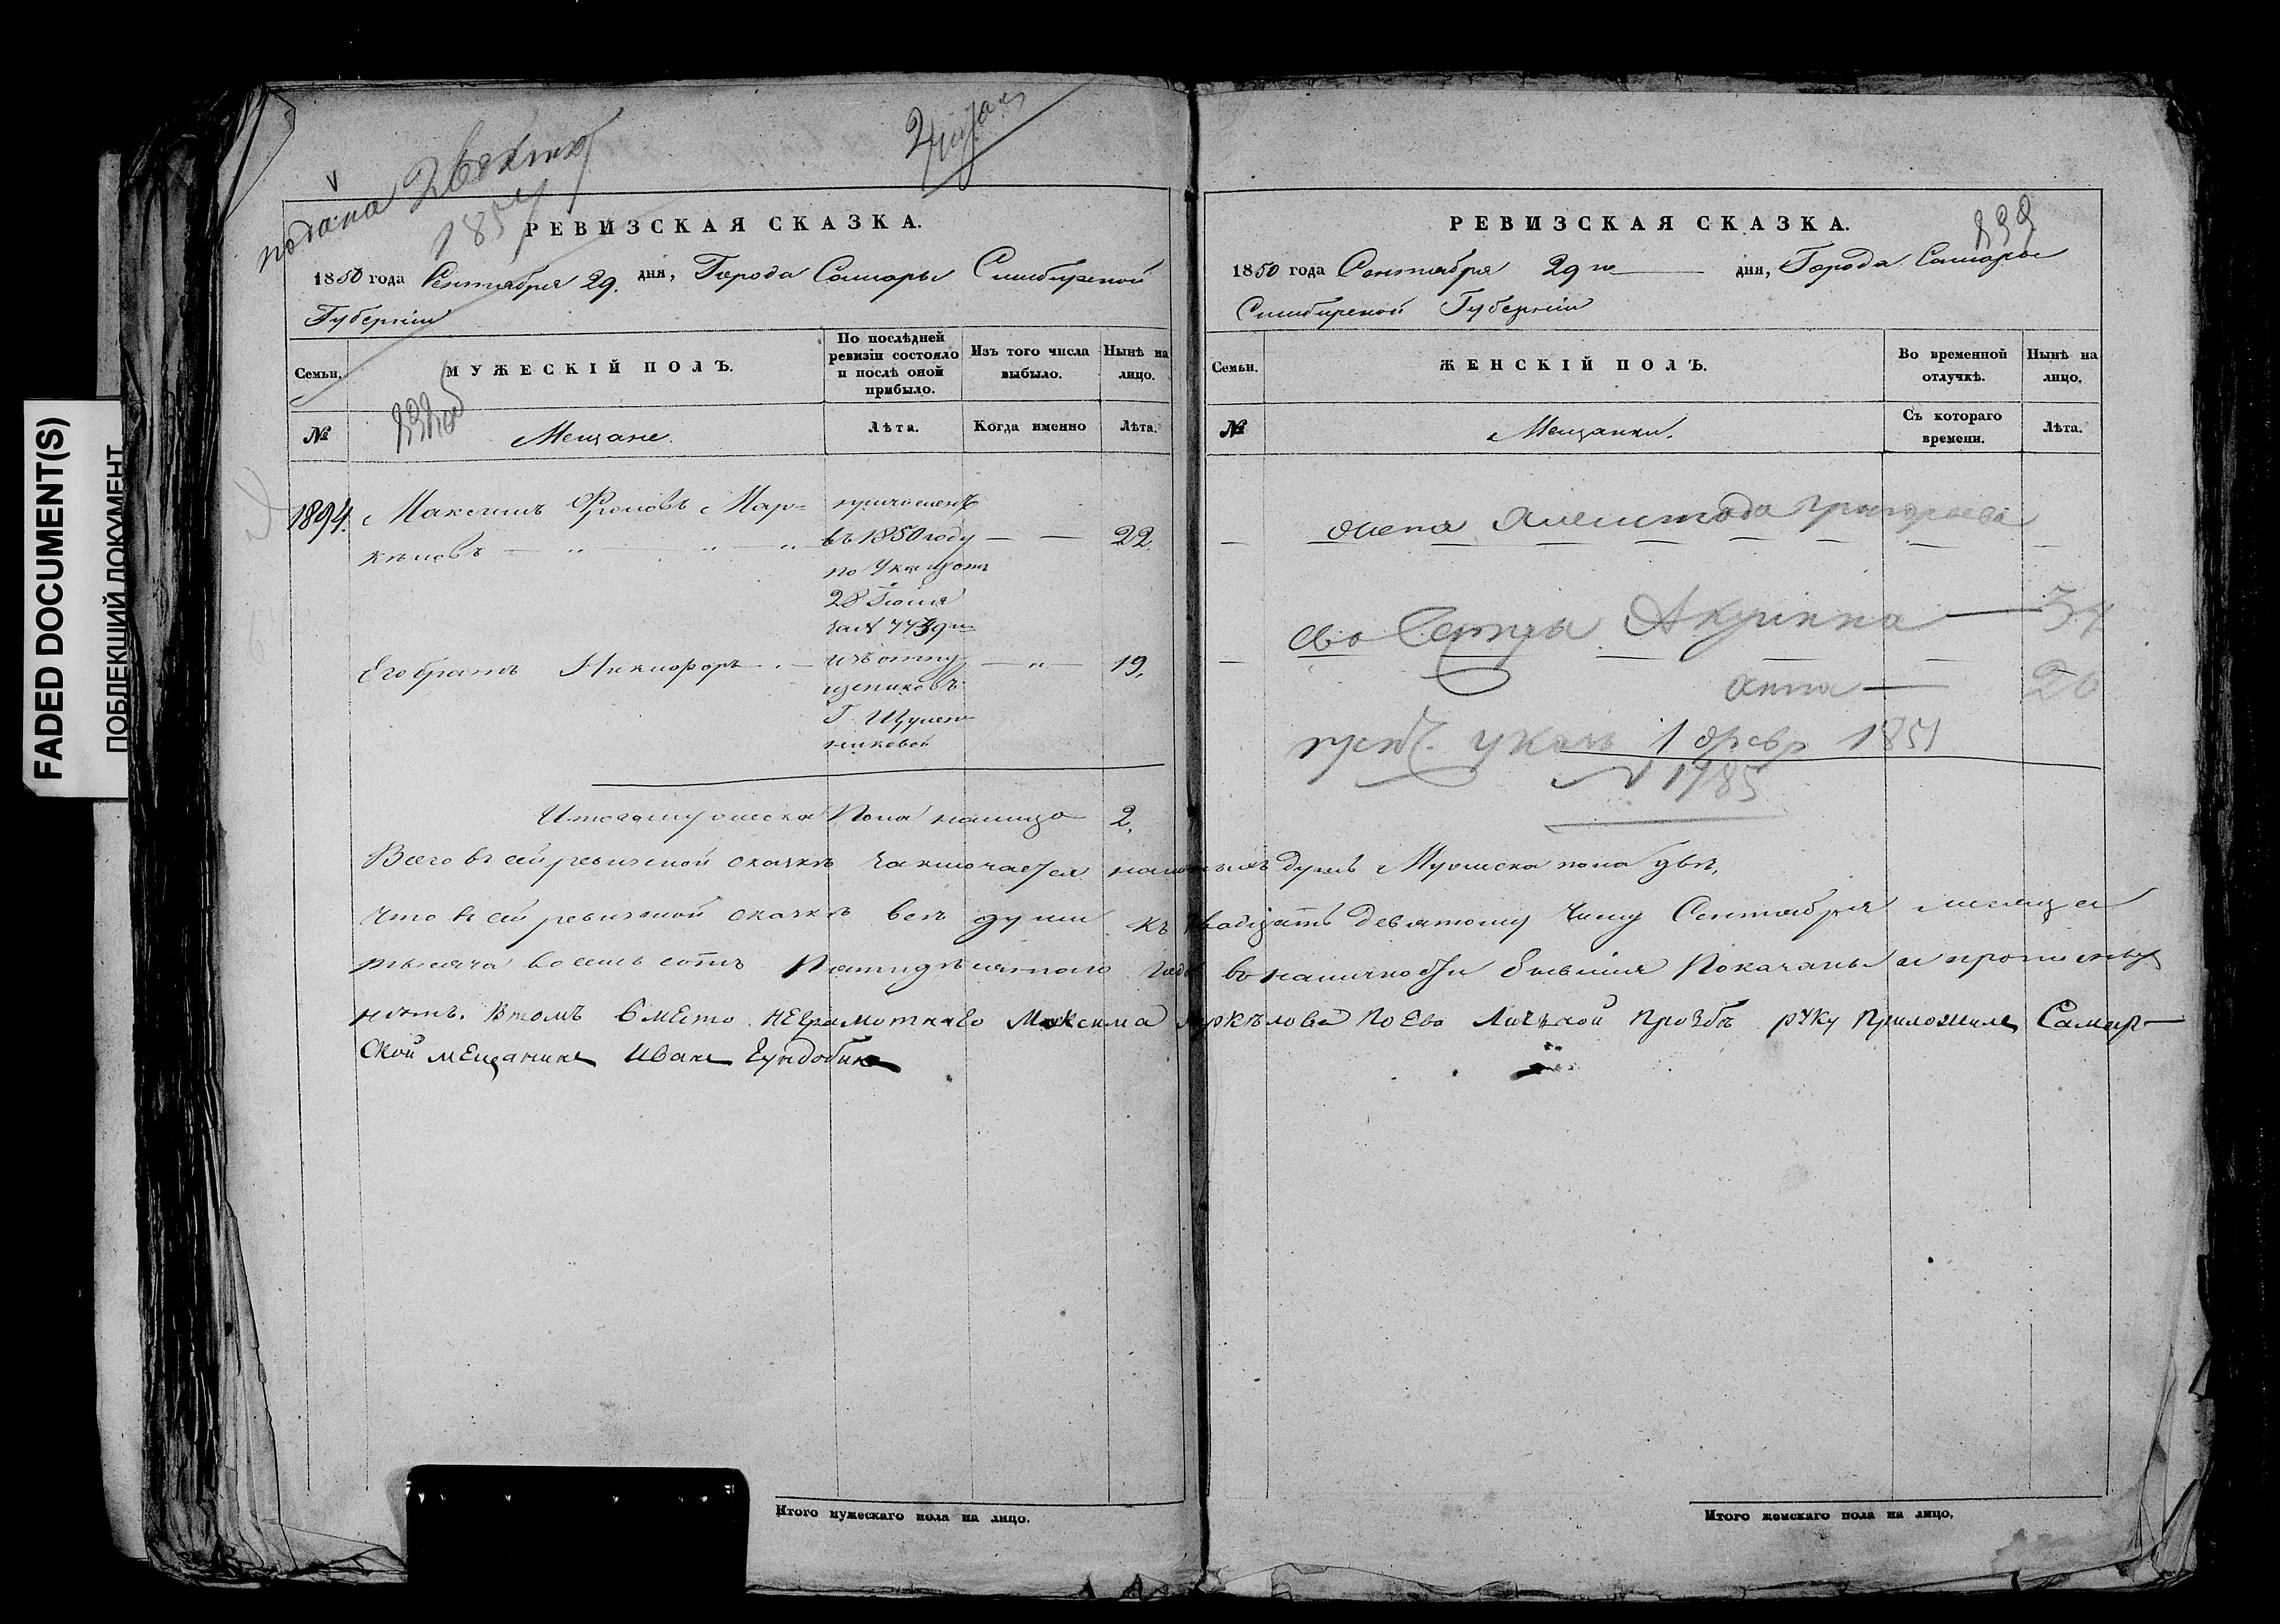 FADED DOCUMENT(S)
ПОБЛЕКШИЙ ДОКУМЕНТ
подана
1857
РЕВИЗСКАЯ СКАЗКА.
1850 года Сентября 29. дня, Города Самары Симбирской
Губерніи
Семьи.
МУЖЕСКІЙ ПОЛЪ.
По послѣдней ревизіи состояло и послѣ оной прибыло.
Изъ того числа выбыло.
Нынѣ на лицо.
№
Мещане.
Лѣта.
Когда именно
Лѣта.
1894. Максимъ Фроловъ Мар-
кѣловъ 22.
причисленъ
въ 1850 году
по Указу отъ
28 Іюня
за № 7739
изъ отпу-
щениковъ
Г. Щупен-
никовой
Его братъ Никифоръ 19.
Итого мужеска Пола налицо 2.
РЕВИЗСКАЯ СКАЗКА.
1850 года Сентября 29го дня, Города Самары
Симбирской Губерніи
Семьи.
ЖЕНСКІЙ ПОЛЪ.
Во временной отлучкѣ.
Нынѣ на лицо.
№
Мещанки.
Съ котораго времени.
Лѣта.
жена Григорьева
ево Сестры Акулина 34
Анна 20
указъ 1 февр 1851
№ 1985
Всего въ сей ревизской сказкѣ заключается наличныхъ душъ Мужеска пола двѣ,
Что въ сей ревизской сказкѣ всѣ души къ двадцать девятому числу Сентября месяца
тысяча восемь сотъ Пятидѣсятаго Года въ наличности бывшия Показаны и прописныхъ
нѣтъ. Втомъ вместо неграмотнаго Максима Маркѣлова по Ево Личьной прозбѣ руку приложилъ Самар-
ской мещанинъ Иванъ Гундобинъ
Итого мужескаго пола на лицо.
Итого женскаго пола на лицо.